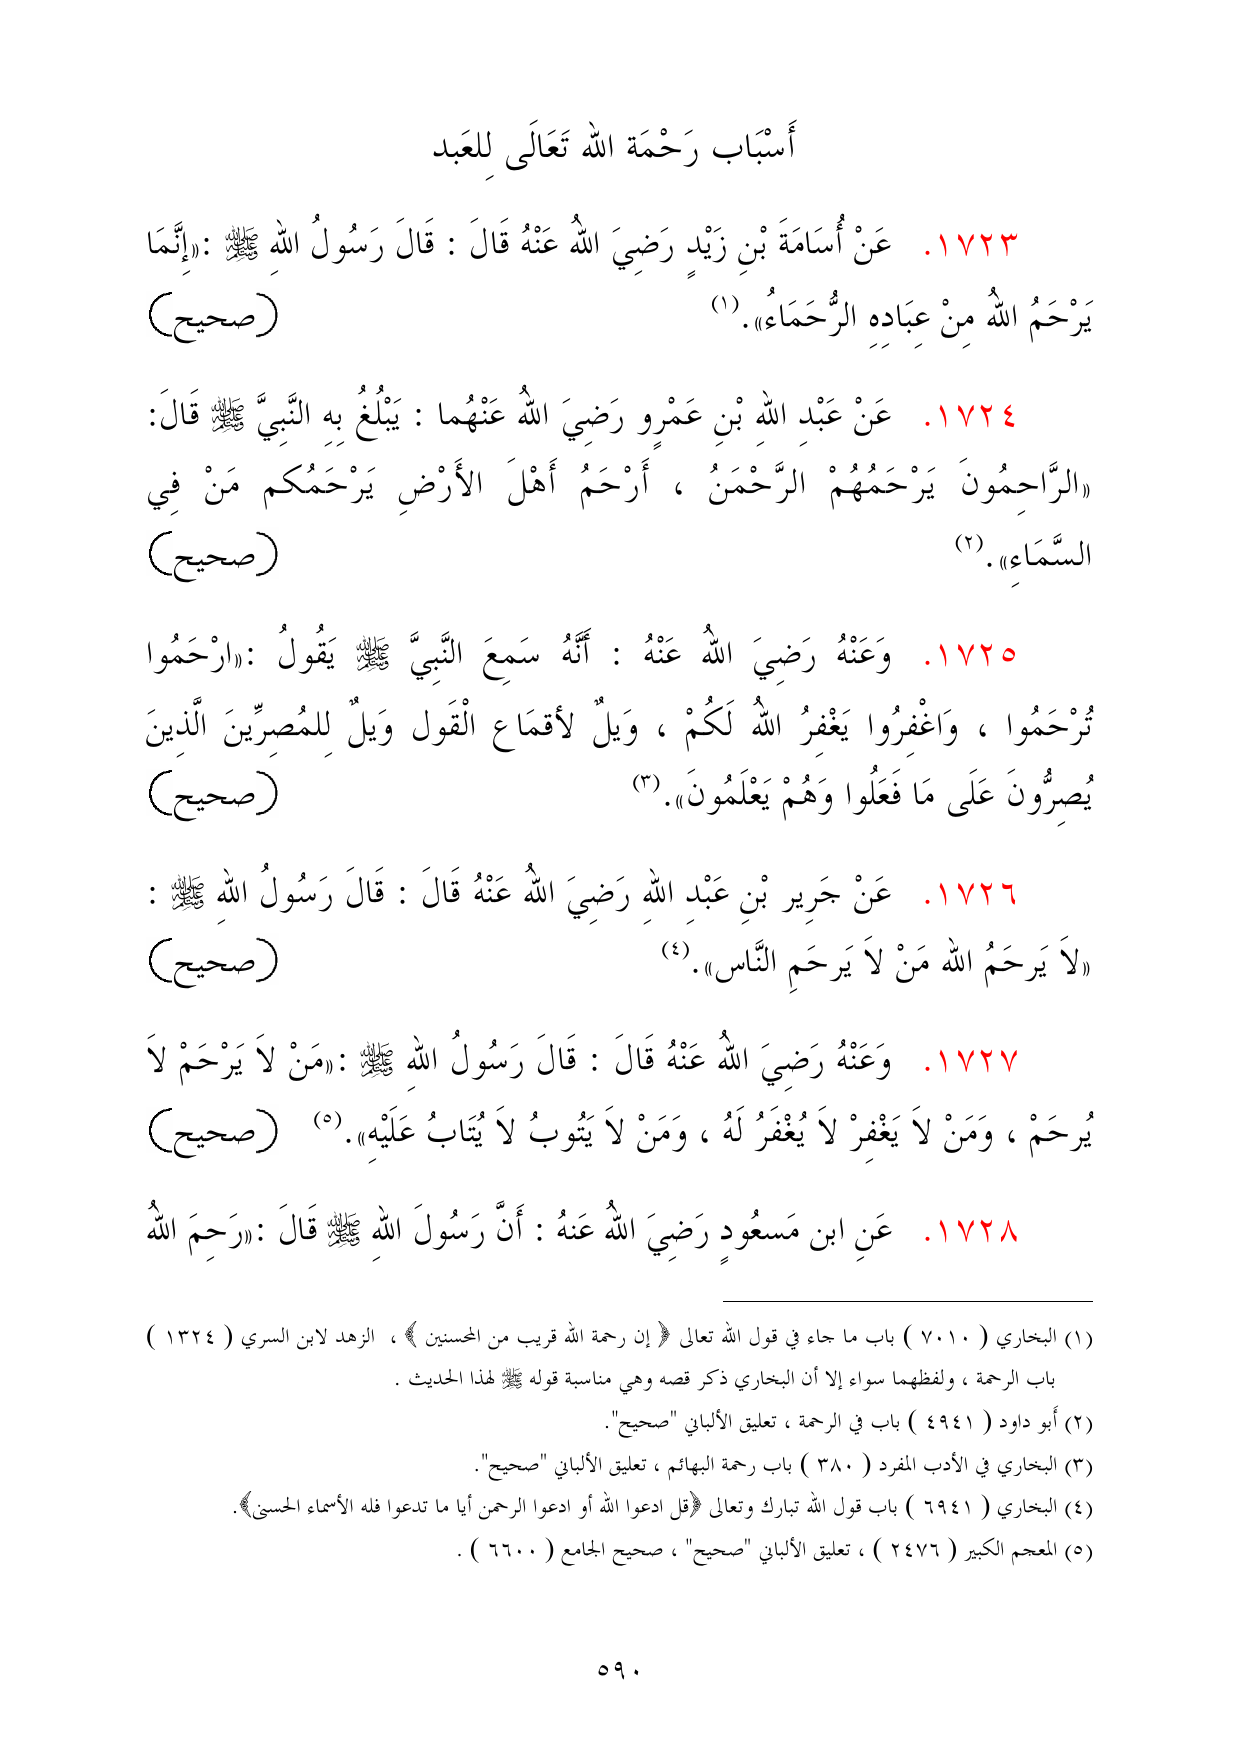 أَسْبَاب رَحْمَة الله تَعَالَى لِلعَبد
١٧٢٣. عَنْ أُسَامَةَ بْنِ زَيْدٍ رَضِيَ اللهُ عَنْهُ قَالَ : قَالَ رَسُولُ اللهِ ﷺ :«إِنَّمَا
يَرْحَمُ اللهُ مِنْ عِبَادِهِ الرُّحَمَاءُ».(١) (صحيح)
١٧٢٤. عَنْ عَبْدِ اللهِ بْنِ عَمْرٍو رَضِيَ اللهُ عَنْهُما : يَبْلُغُ بِهِ النَّبِيَّ ﷺ قَالَ:
«الرَّاحِمُونَ يَرْحَمُهُمْ الرَّحْمَنُ ، أَرْحَمُ أَهْلَ الأَرْضِ يَرْحَمُكم مَنْ فِي
السَّمَاءِ».(٢) (صحيح)
١٧٢٥. وَعَنْهُ رَضِيَ اللهُ عَنْهُ : أَنَّهُ سَمِعَ النَّبِيَّ ﷺ يَقُولُ :«ارْحَمُوا
تُرْحَمُوا ، وَاغْفِرُوا يَغْفِرُ اللهُ لَكُمْ ، وَيلٌ لأقمَاع الْقَول وَيلٌ لِلمُصِرِّينَ الَّذِينَ
يُصِرُّونَ عَلَى مَا فَعَلُوا وَهُمْ يَعْلَمُونَ».(٣) (صحيح)
١٧٢٦. عَنْ جَرِير بْنِ عَبْدِ اللهِ رَضِيَ اللهُ عَنْهُ قَالَ : قَالَ رَسُولُ اللهِ ﷺ :
«لاَ يَرحَمُ الله مَنْ لاَ يَرحَمِ النَّاس».(٤) (صحيح)
١٧٢٧. وَعَنْهُ رَضِيَ اللهُ عَنْهُ قَالَ : قَالَ رَسُولُ اللهِ ﷺ :«مَنْ لاَ يَرْحَمْ لاَ
يُرحَمْ ، وَمَنْ لاَ يَغْفِرْ لاَ يُغْفَرُ لَهُ ، وَمَنْ لاَ يَتُوبُ لاَ يُتَابُ عَلَيْهِ».(٥) (صحيح)
١٧٢٨. عَنِ ابن مَسعُودٍ رَضِيَ اللهُ عَنهُ : أَنَّ رَسُولَ اللهِ ﷺ قَالَ :«رَحِمَ اللهُ
(١) البخاري ( ٧٠١٠ ) باب ما جاء في قول الله تعالى ﴿ إن رحمة الله قريب من المحسنين ﴾ ، الزهد لابن السري ( ١٣٢٤ )
باب الرحمة ، ولفظهما سواء إلا أن البخاري ذكر قصه وهي مناسبة قوله ﷺ لهذا الحديث .
(٢) أَبو داود ( ٤٩٤١ ) باب في الرحمة ، تعليق الألباني "صحيح".
(٣) البخاري في الأدب المفرد ( ٣٨٠ ) باب رحمة البهائم ، تعليق الألباني "صحيح".
(٤) البخاري ( ٦٩٤١ ) باب قول الله تبارك وتعالى ﴿قل ادعوا الله أو ادعوا الرحمن أيا ما تدعوا فله الأسماء الحسنى﴾.
(٥) المعجم الكبير ( ٢٤٧٦ ) ، تعليق الألباني "صحيح" ، صحيح الجامع ( ٦٦٠٠ ) .
٥٩٠